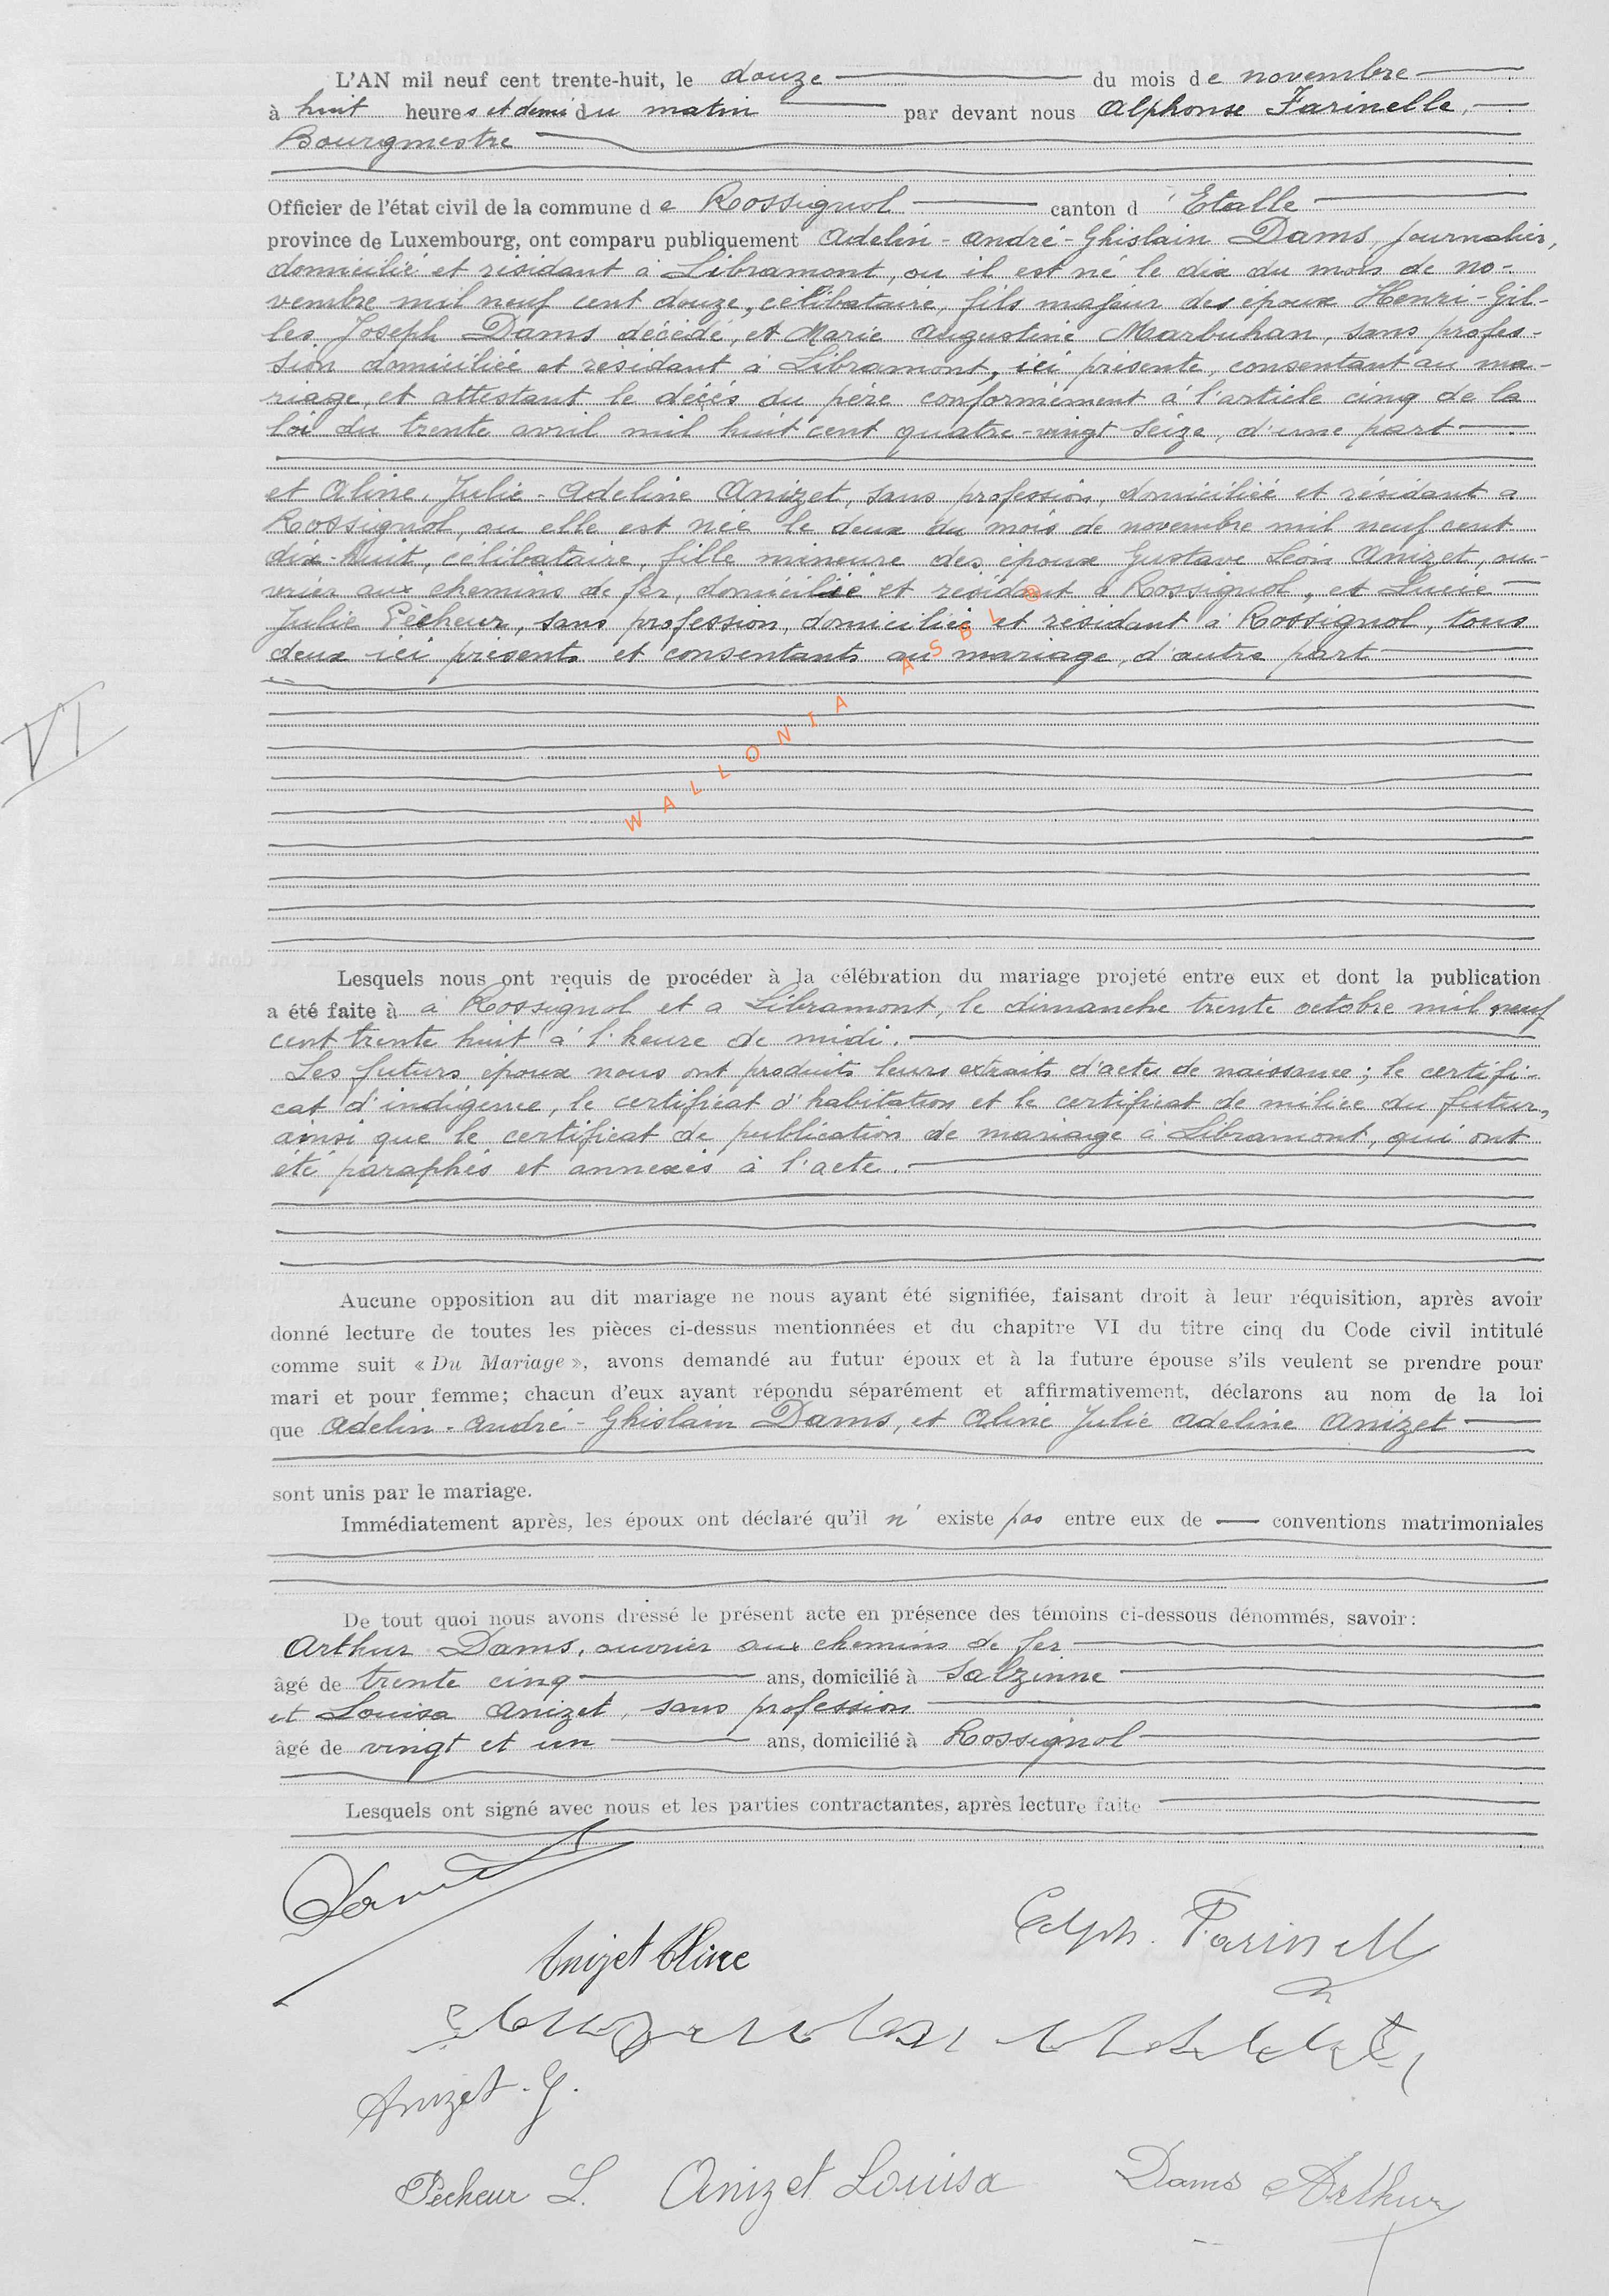 L'AN mil neuf cent trente-huit, le douze du mois de novembre
à huit heures et demi du matin par devant nous Alphonse Farinelle,
Bourgmestre
Officier de l'état civil de la commune de Rossignol canton d'Etalle
province de Luxembourg, ont comparu publiquement Adelin-André-Ghislain Dams, journalier,
domicilié et résidant à Libramont, ou il est né le dix du mois de no-
vembre mil neuf cent douze, célibataire, fils majeur des époux Henri-Gil-
les Joseph Dams décédé, et Marie Augustine Marbuhan, sans profes-
sion domiciliée et résidant à Libramont, ici présente, consentant au ma-
riage, et attestant le décès du père conformément à l'article cinq de la
loi du trente avril mil huit cent quatre-vingt seize, d'une part
et Aline, Julie-Adeline Anizet, sans profession, domiciliée et résidant à
Rossignol, ou elle est née le deux du mois de novembre mil neuf cent
dix-huit, célibataire, fille mineure des époux Gustave Léon Anizet, ou-
vrier aux chemins de fer, domicilié et résidant à Rossignol, et Lucie
Julie Pêcheur, sans profession, domiciliée et résidant à Rossignol, tous
deux ici présents et consentants au mariage, d'autre part
VI
WALLONIA ASBL @
Lesquels nous ont requis de procéder à la célébration du mariage projeté entre eux et dont la publication
a été faite à à Rossignol et a Libramont, le dimanche trente octobre mil neuf
cent trente huit à l'heure de midi.
Les futurs époux nous ont produits leurs extraits d'actes de naissance; le certifi-
cat d'indigence, le certificat d'habitation et le certificat de milice du futur,
ainsi que le certificat de publication de mariage à Libramont, qui ont
été paraphés et annexés à l'acte.
Aucune opposition au dit mariage ne nous ayant été signifiée, faisant droit à leur réquisition, après avoir
donné lecture de toutes les pièces ci-dessus mentionnées et du chapitre VI du titre cinq du Code civil intitulé
comme suit « Du Mariage », avons demandé au futur époux et à la future épouse s'ils veulent se prendre pour
mari et pour femme; chacun d'eux ayant répondu séparément et affirmativement, déclarons au nom de la loi
que Adelin-André-Ghislain Dams, et Aline Julie Adeline Anizet
sont unis par le mariage.
Immédiatement après, les époux ont déclaré qu'il n' existe pas entre eux de conventions matrimoniales
De tout quoi nous avons dressé le présent acte en présence des témoins ci-dessous dénommés, savoir:
Arthur Dams, ouvrier aux chemins de fer
âgé de trente cinq ans, domicilié à Salzinne
et Louisa Anizet, sans profession
âgé de vingt et un ans, domicilié à Rossignol
Lesquels ont signé avec nous et les parties contractantes, après lecture faite
Dams
Alph. Farinelle
Anizet Aline
Anizet. G.
Pêcheur L. Anizet Louisa Dams Arthur